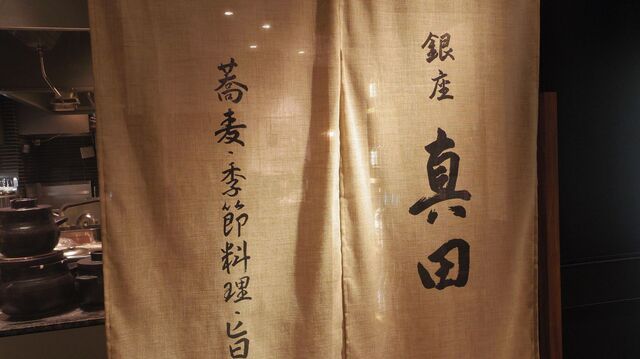 銀座
真田
蕎麦・季節料理・旨